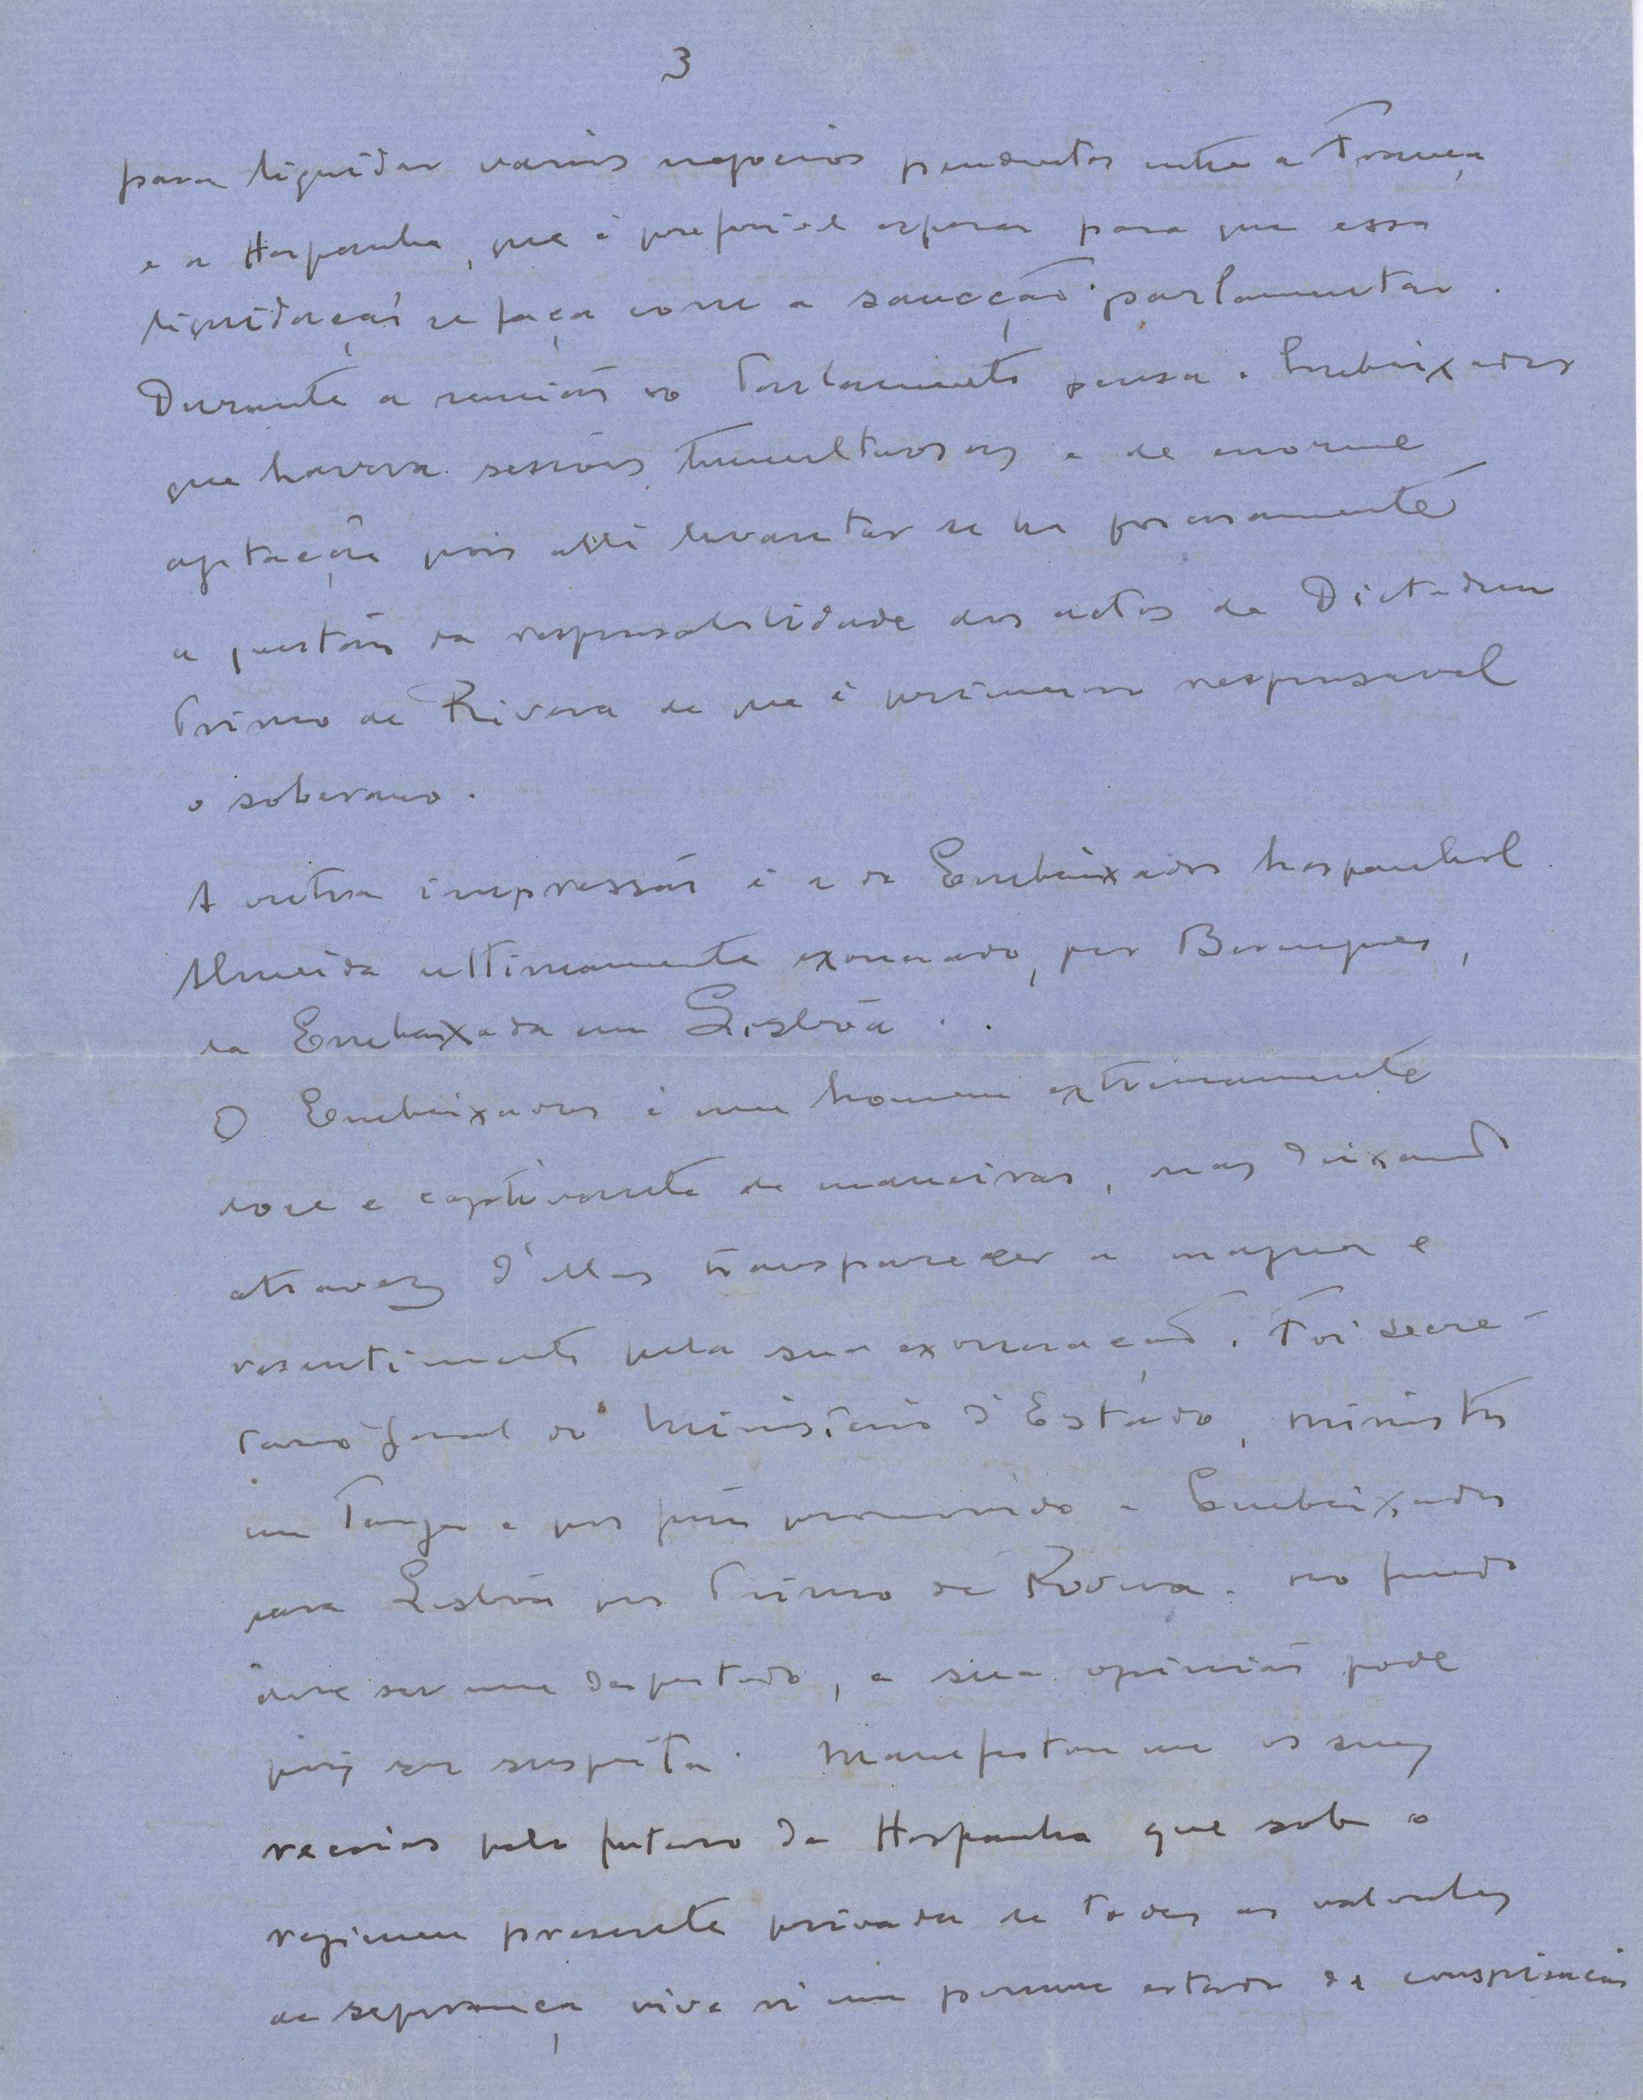 3
para liquidar varios negocios pendentes entre a França
e a Hespanha, que é preferivel esperar para que essa
liquidação se faça com a sancção parlamentar.
Durante a reunião do Parlamento pensa o Embaixador
que haverá sessões tumultuosas e de enorme
agitação pois alli levantar se ha forçosamente
a questão da responsabilidade dos actos da Dictadura
Primo de Rivera de que é primeiro responsavel
o soberano.
A outra impressão é a do Embaixador hespanhol
Almeida ultimamente exonerado, por Berenguer,
da Embaixada em Lisbôa.
O Embaixador é um homem extremamente
doce e captivante de maneiras, mas deixando
atravez d'ellas transparecer a magua e
resentimento pela sua exoneração. Foi secre-
tario geral do Ministerio d'Estado, ministro
em Tanger e por fim promovido a Embaixador
para Lisbôa por Primo de Rivera. No fundo
deve ser um despeitado, a sua opinião pode
pois ser suspeita. Manifestou me os seus
receios pelo futuro da Hespanha que sob o
regimen presente privada de todas as valvulas
de segurança vive n'um perenne estado de conspiração